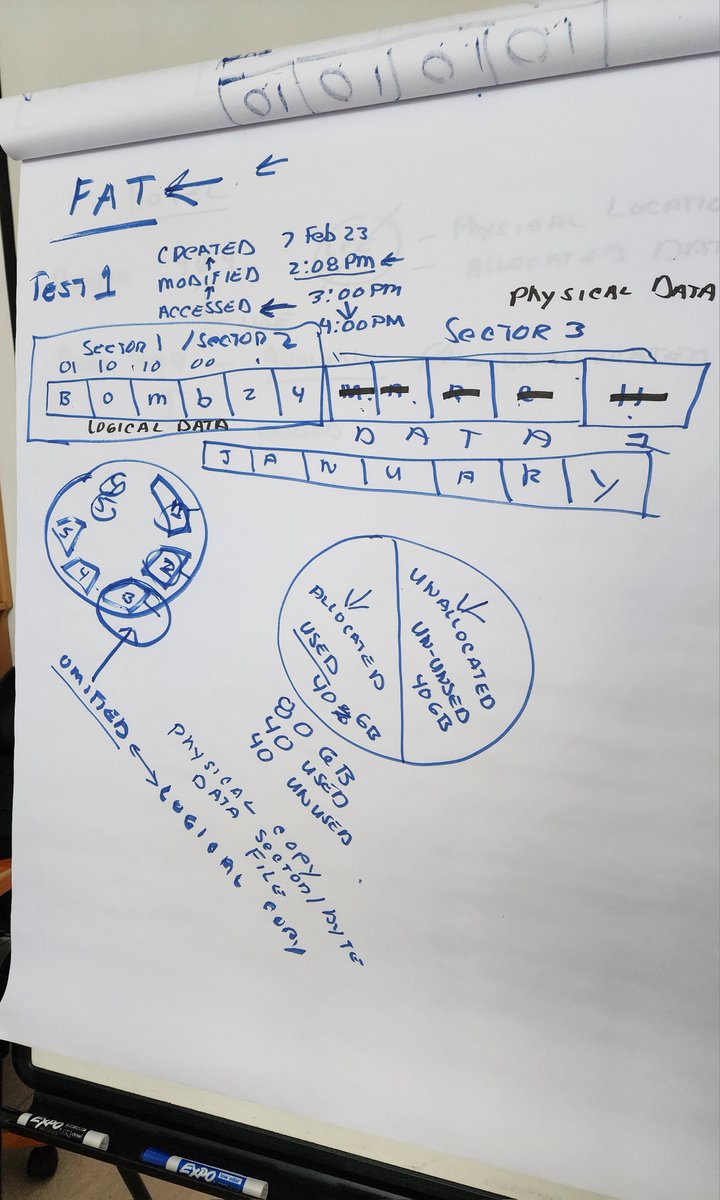 01 01 01 01
FAT ←
←
TEST 1
CREATED 7 Feb 23
MODIFIED 2:08PM ←
ACCESSED ← 3:00PM
4:00PM
PHYSICAL DATA
SECTOR 1 / SECTOR 2
SECTOR 3
01 10 10 00
B O m b 2 4
LOGICAL DATA
D A T A
J A N U A R Y
1
2
3
4
5
ALLOCATED
USED
40 GB
UNALLOCATED
UN-UNSED
40GB
80 GB
40 USED
40 UNUSED
OMITTED ↔ LOGICAL COPY
PHYSICAL COPY
DATA SECTOR/BYTE
FILE
EXPO
EXPO